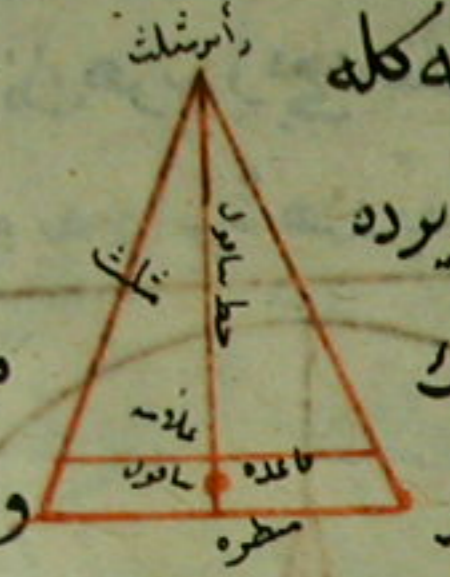 رأس مثلث
ه كله
يرده
خط ساقول
مثلث
علامت
ساقول
قاعده
مسطره
و